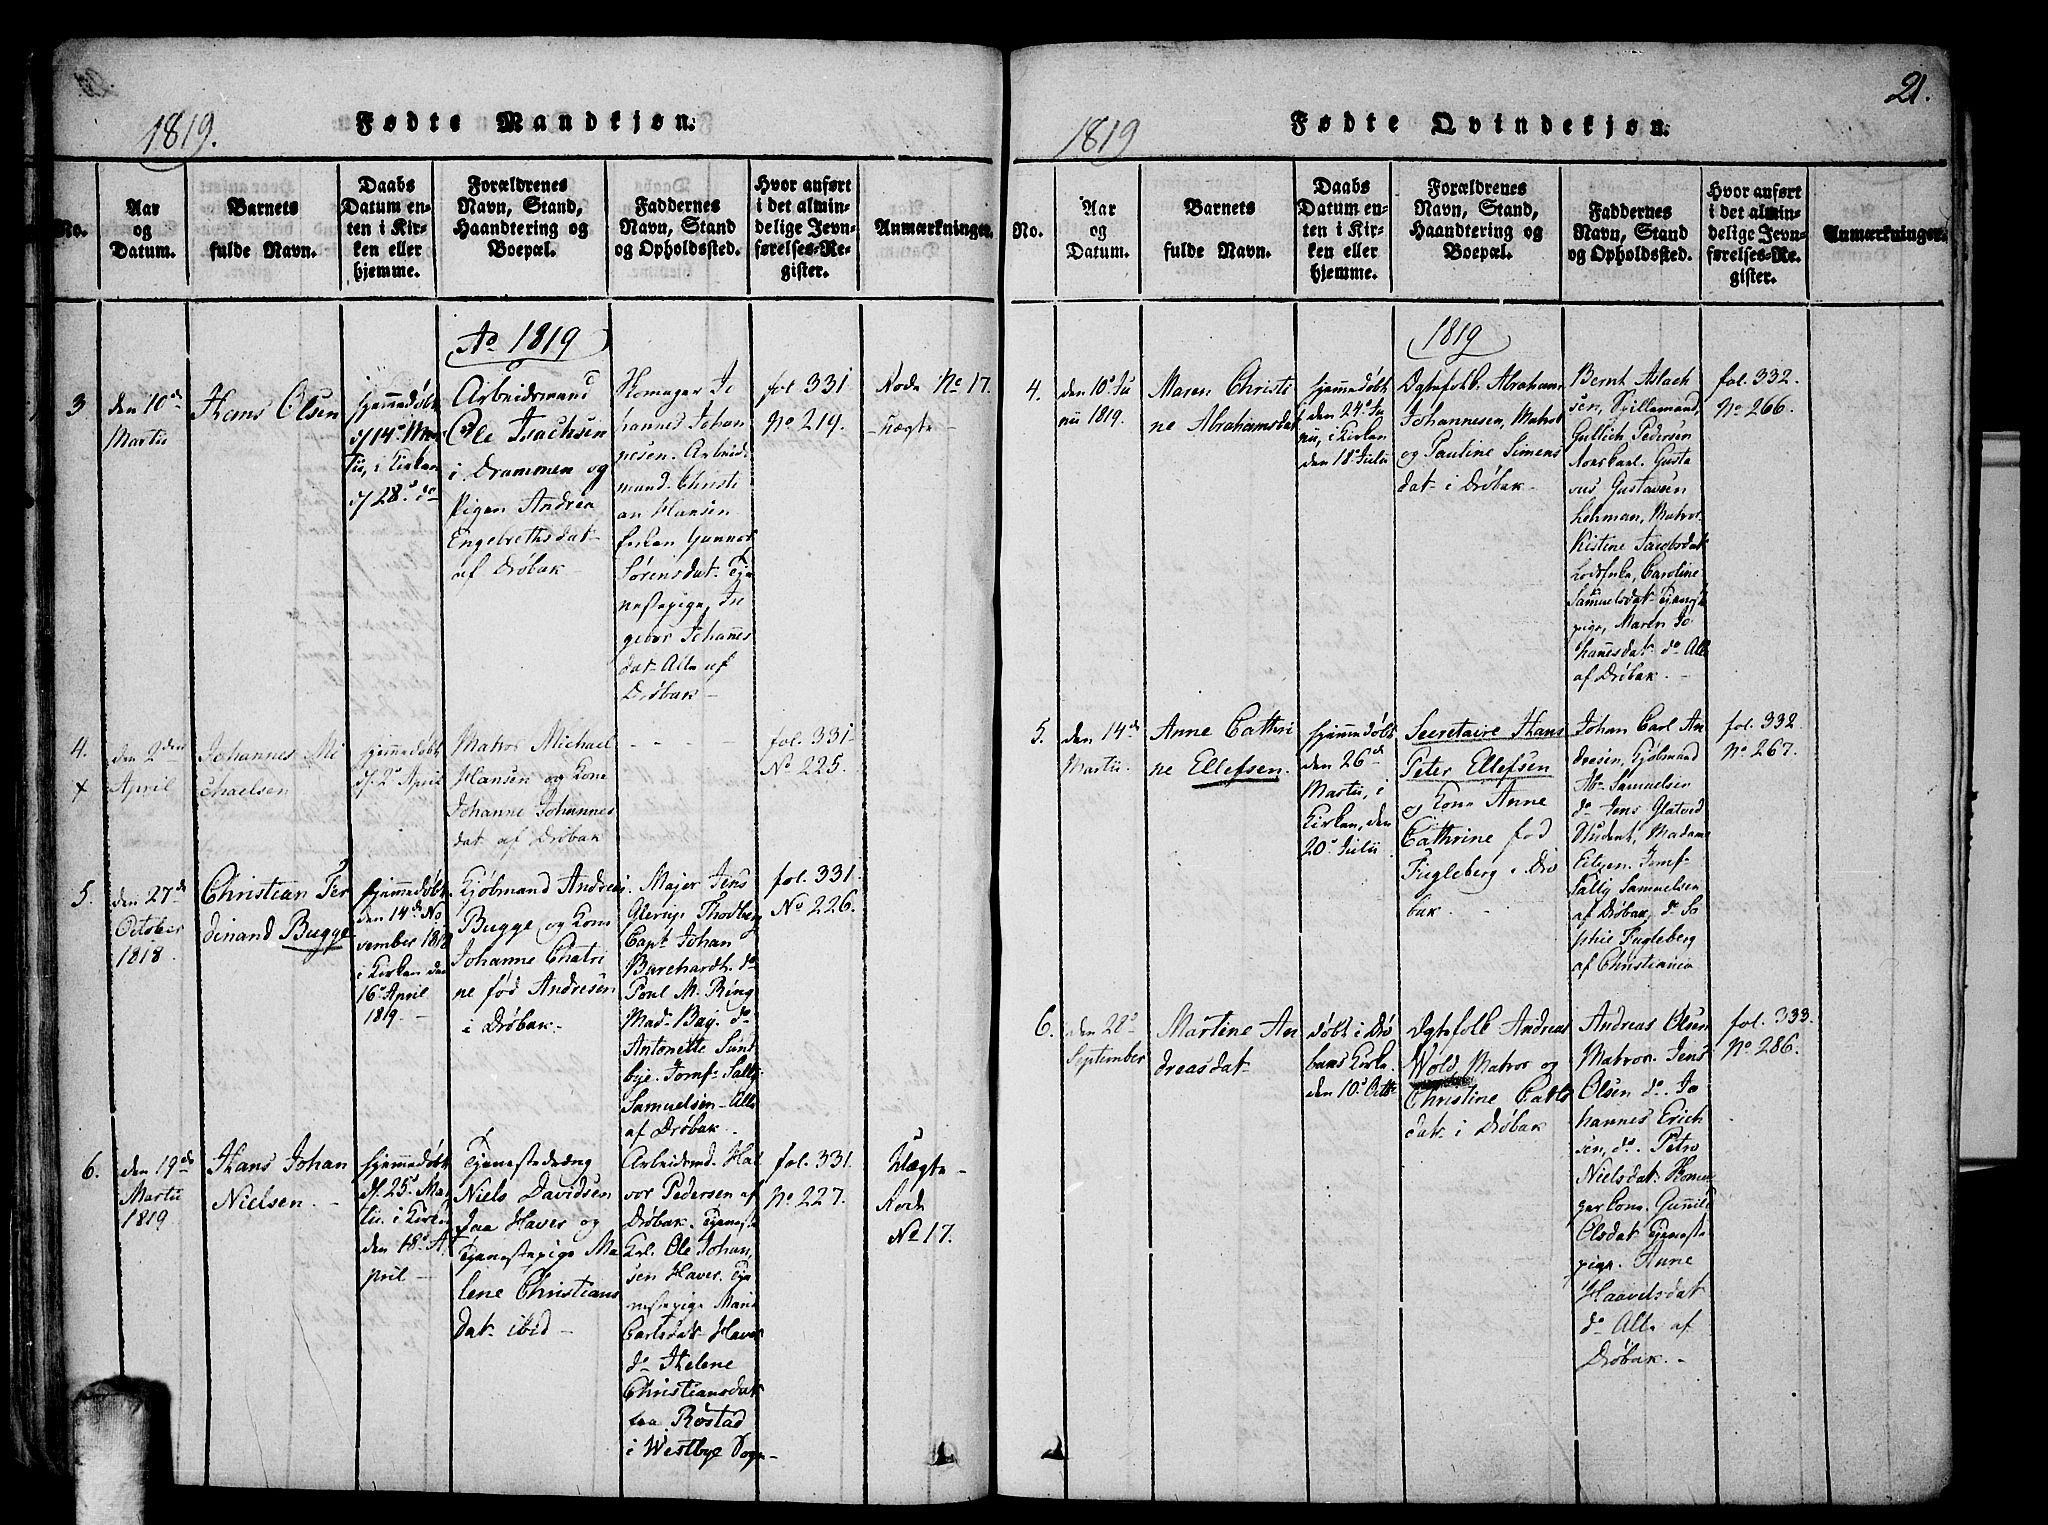 21.
1819.
Fødte Mandkjøn.
No.
Aar
og
Datum.
Barnets
fulde Navn.
Daabs
Datum en-
ten i Kir-
ken eller
hjemme.
Forældrenes
Navn, Stand,
Haandtering og
Boepæl.
Faddernes
Navn, Stand
og Opholdssted.
Hvor anført
i det almin-
delige Jevn-
førelses-Re-
gister.
Anmærkninger.
Ao 1819
3.
den 10de
Martii
Hans Olsen
hjemmedøbt
d 14de Mar
tii, i Kirken
d 28de do
Arbeidsmand
Ole Isachsen
i Drammen og
Pigen Andrea
Engebrethsdat
af Drøbak
Skomager Jo
hannes Johan
nesen. Arbeids
mand Christi
an Hansen
Enken Gunnor
Sørensdat. Tje
nestepige, In
gebor Johannes
dat Alle af
Drøbak
fol 331.
No 219.
Node No 17.
uægte
4.
x
den 2den
April
Johannes Mi
chaelsen
hjemmedøbt
d. 2den April
Matros Michael
Hansen og Kone
Johanne Johannes
dat af Drøbak
- - - -
fol. 331.
No 225.
5.
den 27de
October
1818.
Christian Fer
dinand Bugge
hjemmedøbt
den 14de No
vember 1818
i Kirken den
16de April
1819.
Kjøbmand Andreas
Bugge og Kone
Johanne Chatri
ne fød Andresen
i Drøbak
Major Jens
Glerup Thodberg
Capt Johan
Borchardt. do
Poul M. Ring
Mad. Bay. do
Antonette Sund
bye. Jomf. Sally
Samuelsen Alle
af Drøbak.
fol. 331.
No 226.
6.
den 19de
Martii
1819
Hans Johan
Nielsen
hjemmedøbt
d. 25de Mar
tii. i Kirken
den 18de A
pril
Tjenestedreng
Niels Davidsen
paa Haver og
Tjenestepige Ma
lene Christians
dat ibid
Arbeidsmd. Hal
vor Pedersen af
Drøbak. Tjeneste
Krl. Ole Johan
sen Haver. Tje
nestepige Marie
Carlsdat Haver
do Helene
Christiansdat
fra Røstad
i Westbye Sogn
fol. 331.
No 227.
Uægte
Node
No 17.
1819
Fødte Qvindekjøn.
No.
Aar
og
Datum.
Barnets
fulde Navn.
Daabs
Datum en-
ten i Kir-
ken eller
hjemme.
Forældrenes
Navn, Stand,
Haandtering og
Boepæl.
Faddernes
Navn, Stand
og Opholdssted.
Hvor anført
i det almin-
delige Jevn-
førelses-Re-
gister.
Anmærkninger.
1819
4.
den 10de Ju
nii 1819.
Maren Christi
ne Abrahamsdat
hjemmedøbt
den 24de Ju
nii, i Kirken
den 18de Julii
Ægtefolk Abraham
Johannesen, Matros
og Pauline Simens
dat i Drøbak
Bernt Aslach
sen, Spillemand,
Gullich Pedersen
Gusta
vus Gustavsen
Lehman, Matros
Kistine Jacobsdat
Lodsenke, Caroline
Samuelsdat Tjeneste
pige, Maren Jo
hannesdat do Alle
af Drøbak.
fol. 332.
No 266.
5.
den 14de
Martii.
Anne Cathri
ne Ellefsen.
hjemmedøbt
den 26de
Martii, i
Kirken, den
20de Julii
Secretaire Hans
Peter Ellefsen
og Kone Anne
Cathrine fød
Fugleberg i Drø
bak.
Johan Carl An
dresen, Kjøbmand
Samuelsen
do Jens Glatved
Student, Madame
Jomf.
Sally Samuelsen
af Drøbak, do So
phie Fugleberg
af Christiania
fol. 332
No 267.
6.
den 22de
September
Martine An
dreasdat
døbt i Drø
baks Kirke
den 10de Octbr
Ægtefolk Andreas
Wold, Matros og
Christine
dat i Drøbak
Andreas Olsen
Matros. Jens
Olsen do. Jo
hannes Erich
sen, do. Petro
Nielsdat
Gunild
Olsdat Tjeneste
pige. Anne
Haavelsdat
do Alle af
Drøbak.
fol. 333.
No 286.